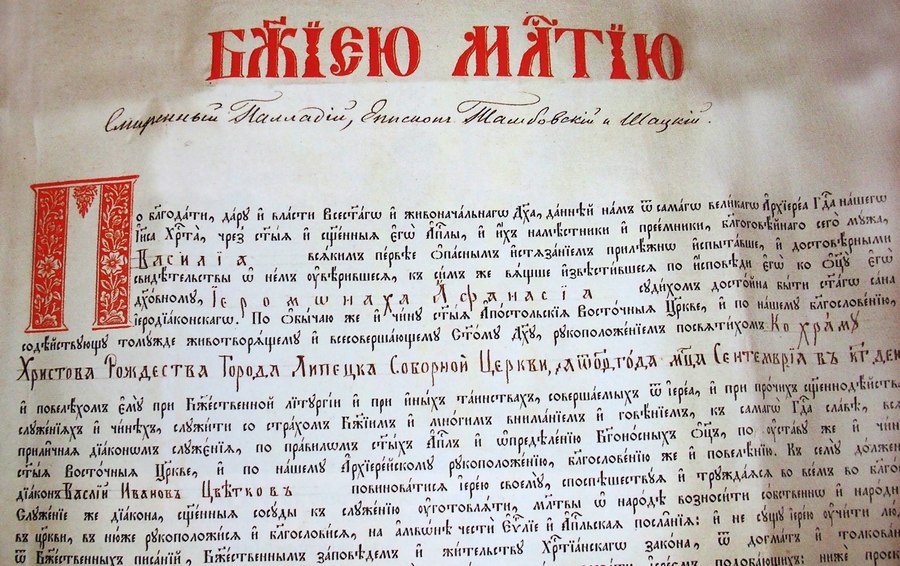 БЖ҃ІЕЮ МЛ҃ТІЮ
Смиренный Палладій, Епископъ Тамбовскій и Шацкій.
По бл҃года́ти, да́ру и҆ вла́сти Всест҃а́гѡ и҆ живонача́льнагѡ Дх҃а, да́ннѣй на́мъ ѿ самагѡ вели́кагѡ А҆рхїере́а Гд҇а на́шегѡ
І҆и҃са Хрⷭ҇та̀, чрез̾ ст҃ы́ѧ и҆ сщ҃е́нныѧ є҆гѡ̀ А҆пⷭ҇лы, и҆ и҆́хъ намѣ́стники и҆ прее́мники, бл҃гоговѣ́йнаго сего̀ мꙋ́жа,
Васи́лїа всѧ́кимъ пе́рвѣе ѡ҆па́снымъ и҆стѧза́нїемъ прилѣ́жнѡ и҆спыта́вше, и҆ достовѣ́рными
свидѣ́тельствы ѡ҆ не́мъ ᲂу҆вѣ́рившесѧ, къ си́мъ же вѧ́щше и҆звѣсти́вшесѧ по и҆́сповѣди є҆гѡ̀ ко ѻ҆ц҃ꙋ̀ є҆гѡ̀
дх҃о́вномꙋ, І҆еромона́ха А҆фана́сїа сꙋди́хомъ досто́йна бы́ти ст҃а́гѡ са́на
і҆еродїа́конскагѡ. По ѡ҆бы́чаю же и҆ чи́нꙋ ст҃ы́ѧ А҆по́стольскїѧ Восто́чныѧ Цр҃кве, и҆ по на́шемꙋ бл҃гослове́нїю,
содѣ́йствꙋющꙋ томꙋ́жде животворѧ́щемꙋ и҆ всесоверша́ющемꙋ Ст҃о́мꙋ Дх҃ꙋ, рꙋкоположе́нїемъ посвѧти́хомъ Ко хра́мꙋ
Христова Рождества Города Липецка Соборной Церкви, года мц҃а Сентемврїа въ кг҃ ден
и҆ повелѣ́хомъ є҆мꙋ̀ при Бж҃е́ственной лїтꙋргі́и и҆ при и҆́ныхъ та́инствахъ, соверша́емыхъ ѿ і҆ере́а, и҆ при про́чихъ сщ҃еннодѣ́йства
слꙋже́нїѧхъ и҆ чинѣ́хъ, слꙋжи́ти со стра́хомъ Бж҃їимъ и҆ мно́гимъ внима́нїемъ и҆ говѣ́нїемъ, къ самагѡ̀ Гд҇а сла́вѣ, всѧ
прили́чнаѧ дїа́кѡнѡмъ слꙋжє́нїѧ, по пра́вилѡмъ ст҃ы́хъ А҆пⷭ҇лъ и҆ ѡ҆предѣле́нїю Бг҃оно́сныхъ Ѻ҆ц҃ъ, по ᲂу҆ста́вꙋ же и҆ чи́нꙋ
ст҃ы́ѧ Восто́чныѧ Цр҃кве, и҆ по на́шемꙋ А҆рхїере́йскомꙋ рꙋкоположе́нїю, бл҃гослове́нїю же и҆ повелѣ́нїю. Къ семꙋ̀ до́лжен
дїа́конъ Васлїй Ивановъ Цвѣтковъ повинова́тисѧ і҆ере́ю своемꙋ̀, споспѣ́шествꙋѧ и҆ трꙋжда́ѧсѧ во все́мъ во бл҃го
Слꙋже́нїе же дїа́кона, сщ҃е́нныѧ сосꙋ́ды къ слꙋже́нїю ᲂу҆готовлѧ́ти, мл҃твы ѡ҆ наро́дѣ возноси́ти со́бственнѡ и҆ наро́дн
въ цр҃кви, въ ню́же рꙋкоположи́сѧ и҆ бл҃гослови́сѧ, на а҆мвѡ́нѣ че́сти Є҆ѵⷢ҇лїе и҆ А҆пⷭ҇льскаѧ посла̑нїѧ: и҆ не сꙋ́щꙋ і҆ере́ю ᲂу҆чи́ти лю
ѿ Бж҃е́ственныхъ писа́нїй, Бж҃е́ственнымъ за́повѣдемъ и҆ жи́тельствꙋ Хрⷭ҇тїа́нскагѡ зако́на, ѿ догма́тъ и҆ толкова́н
подоба́ющихъ: ни́же проск